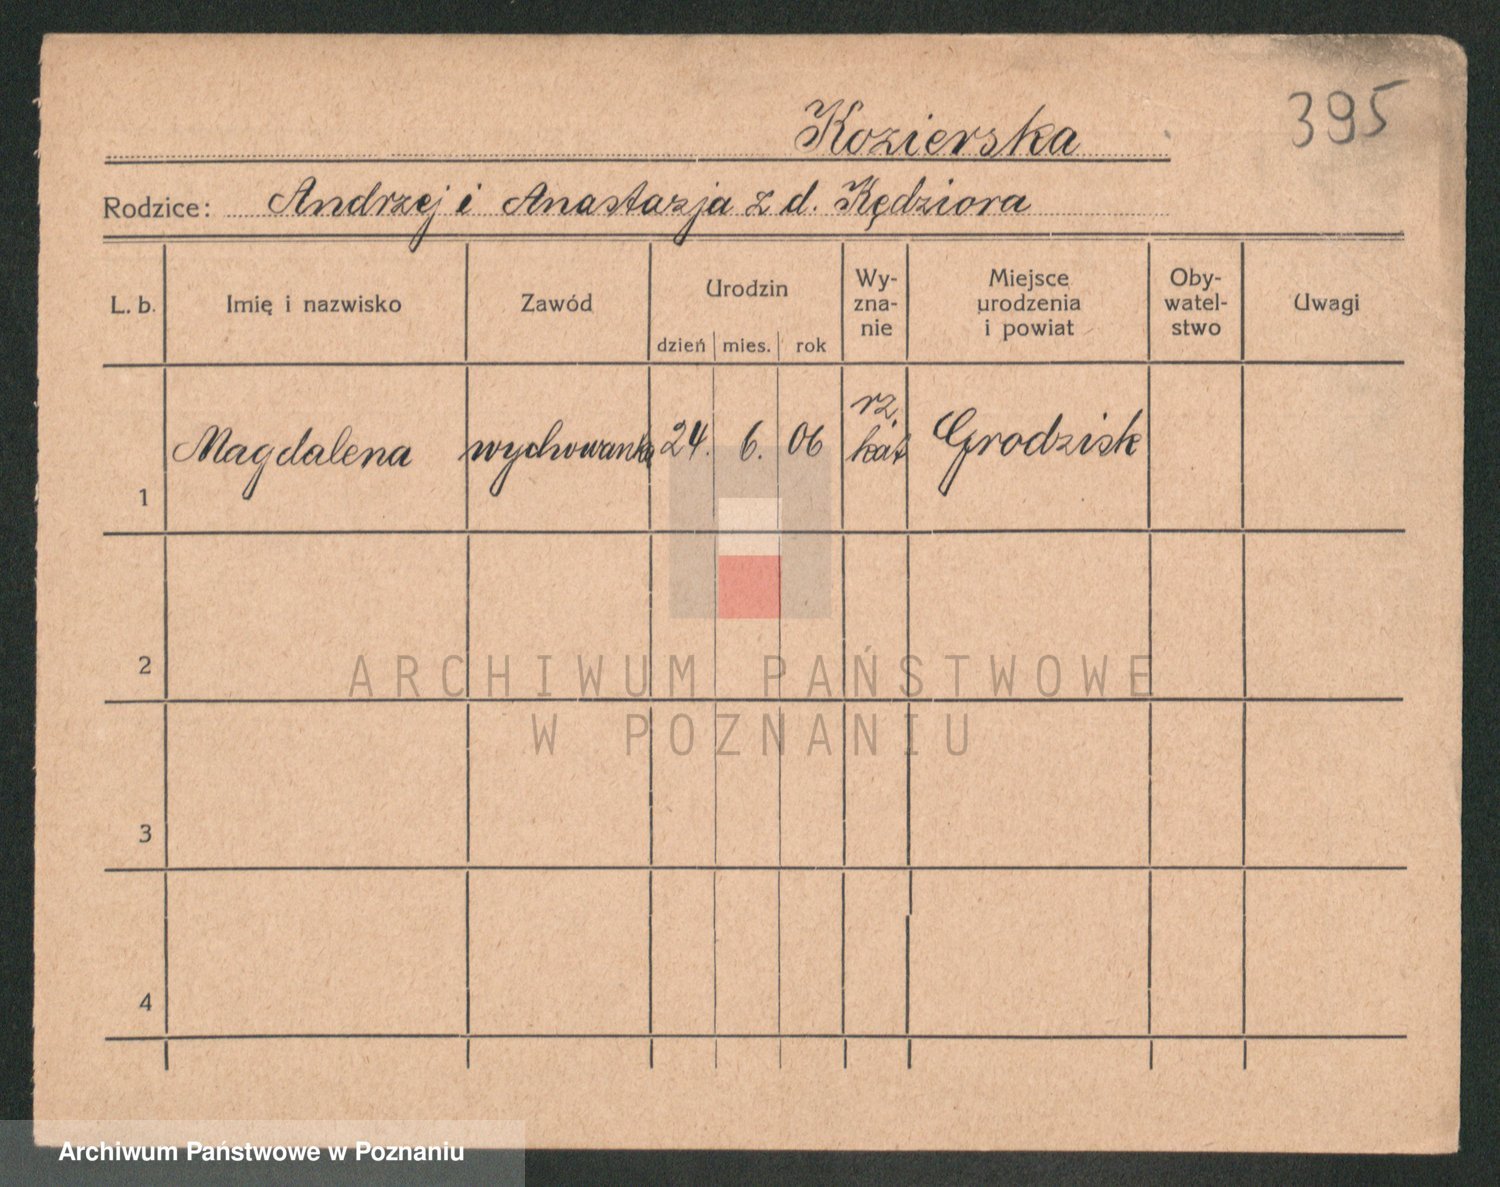 395
Kozierska
Rodzice: Andrzej i Anastazja z d. Kędziora
L. b.
Imię i nazwisko
Zawód
Urodzin
dzień mies. rok
Wy-
zna-
nie
Miejsce
urodzenia
i powiat
Oby-
watel-
stwo
Uwagi
1 Magdalena wychowanka 24. 6. 06 rz. kat Grodzisk
2
3
4
ARCHIWUM PAŃSTWOWE
W POZNANIU
Archiwum Państwowe w Poznaniu